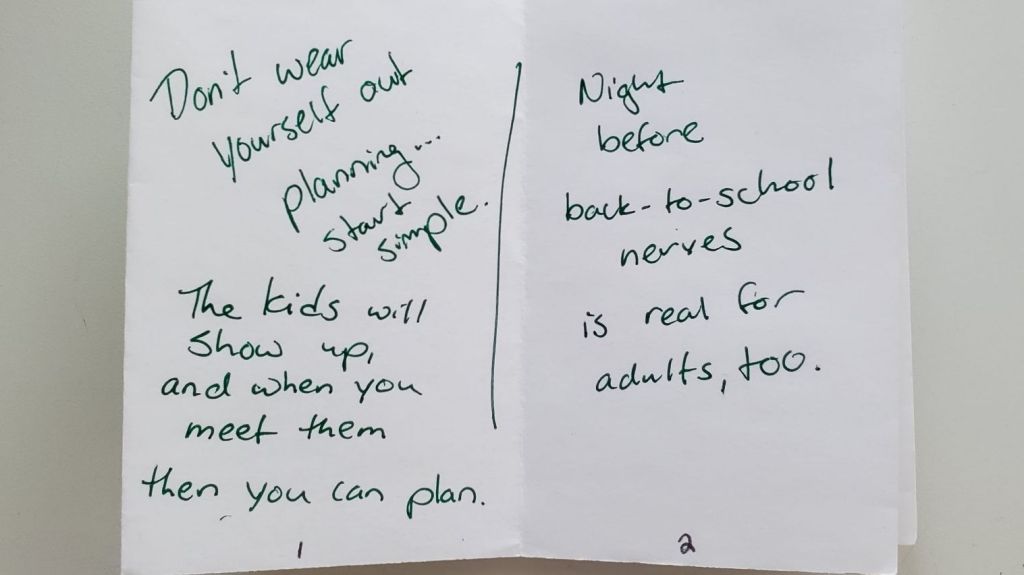 Don't wear
yourself out
planning...
start
simple.
The kids will
show up,
and when you
meet them
then you can plan.
1
Night
before
back-to-school
nerves
is real for
adults, too.
2